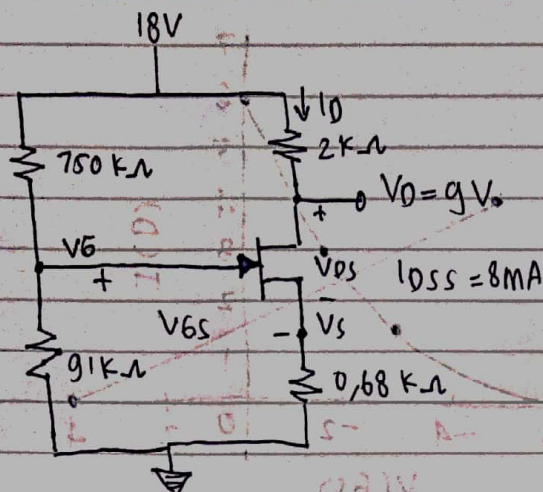 18V
ID
750 KΩ
2KΩ
VD = 9V
VG
+
+
VDS
IDSS = 8MA
VGS
-
-
VS
91KΩ
0,68 KΩ